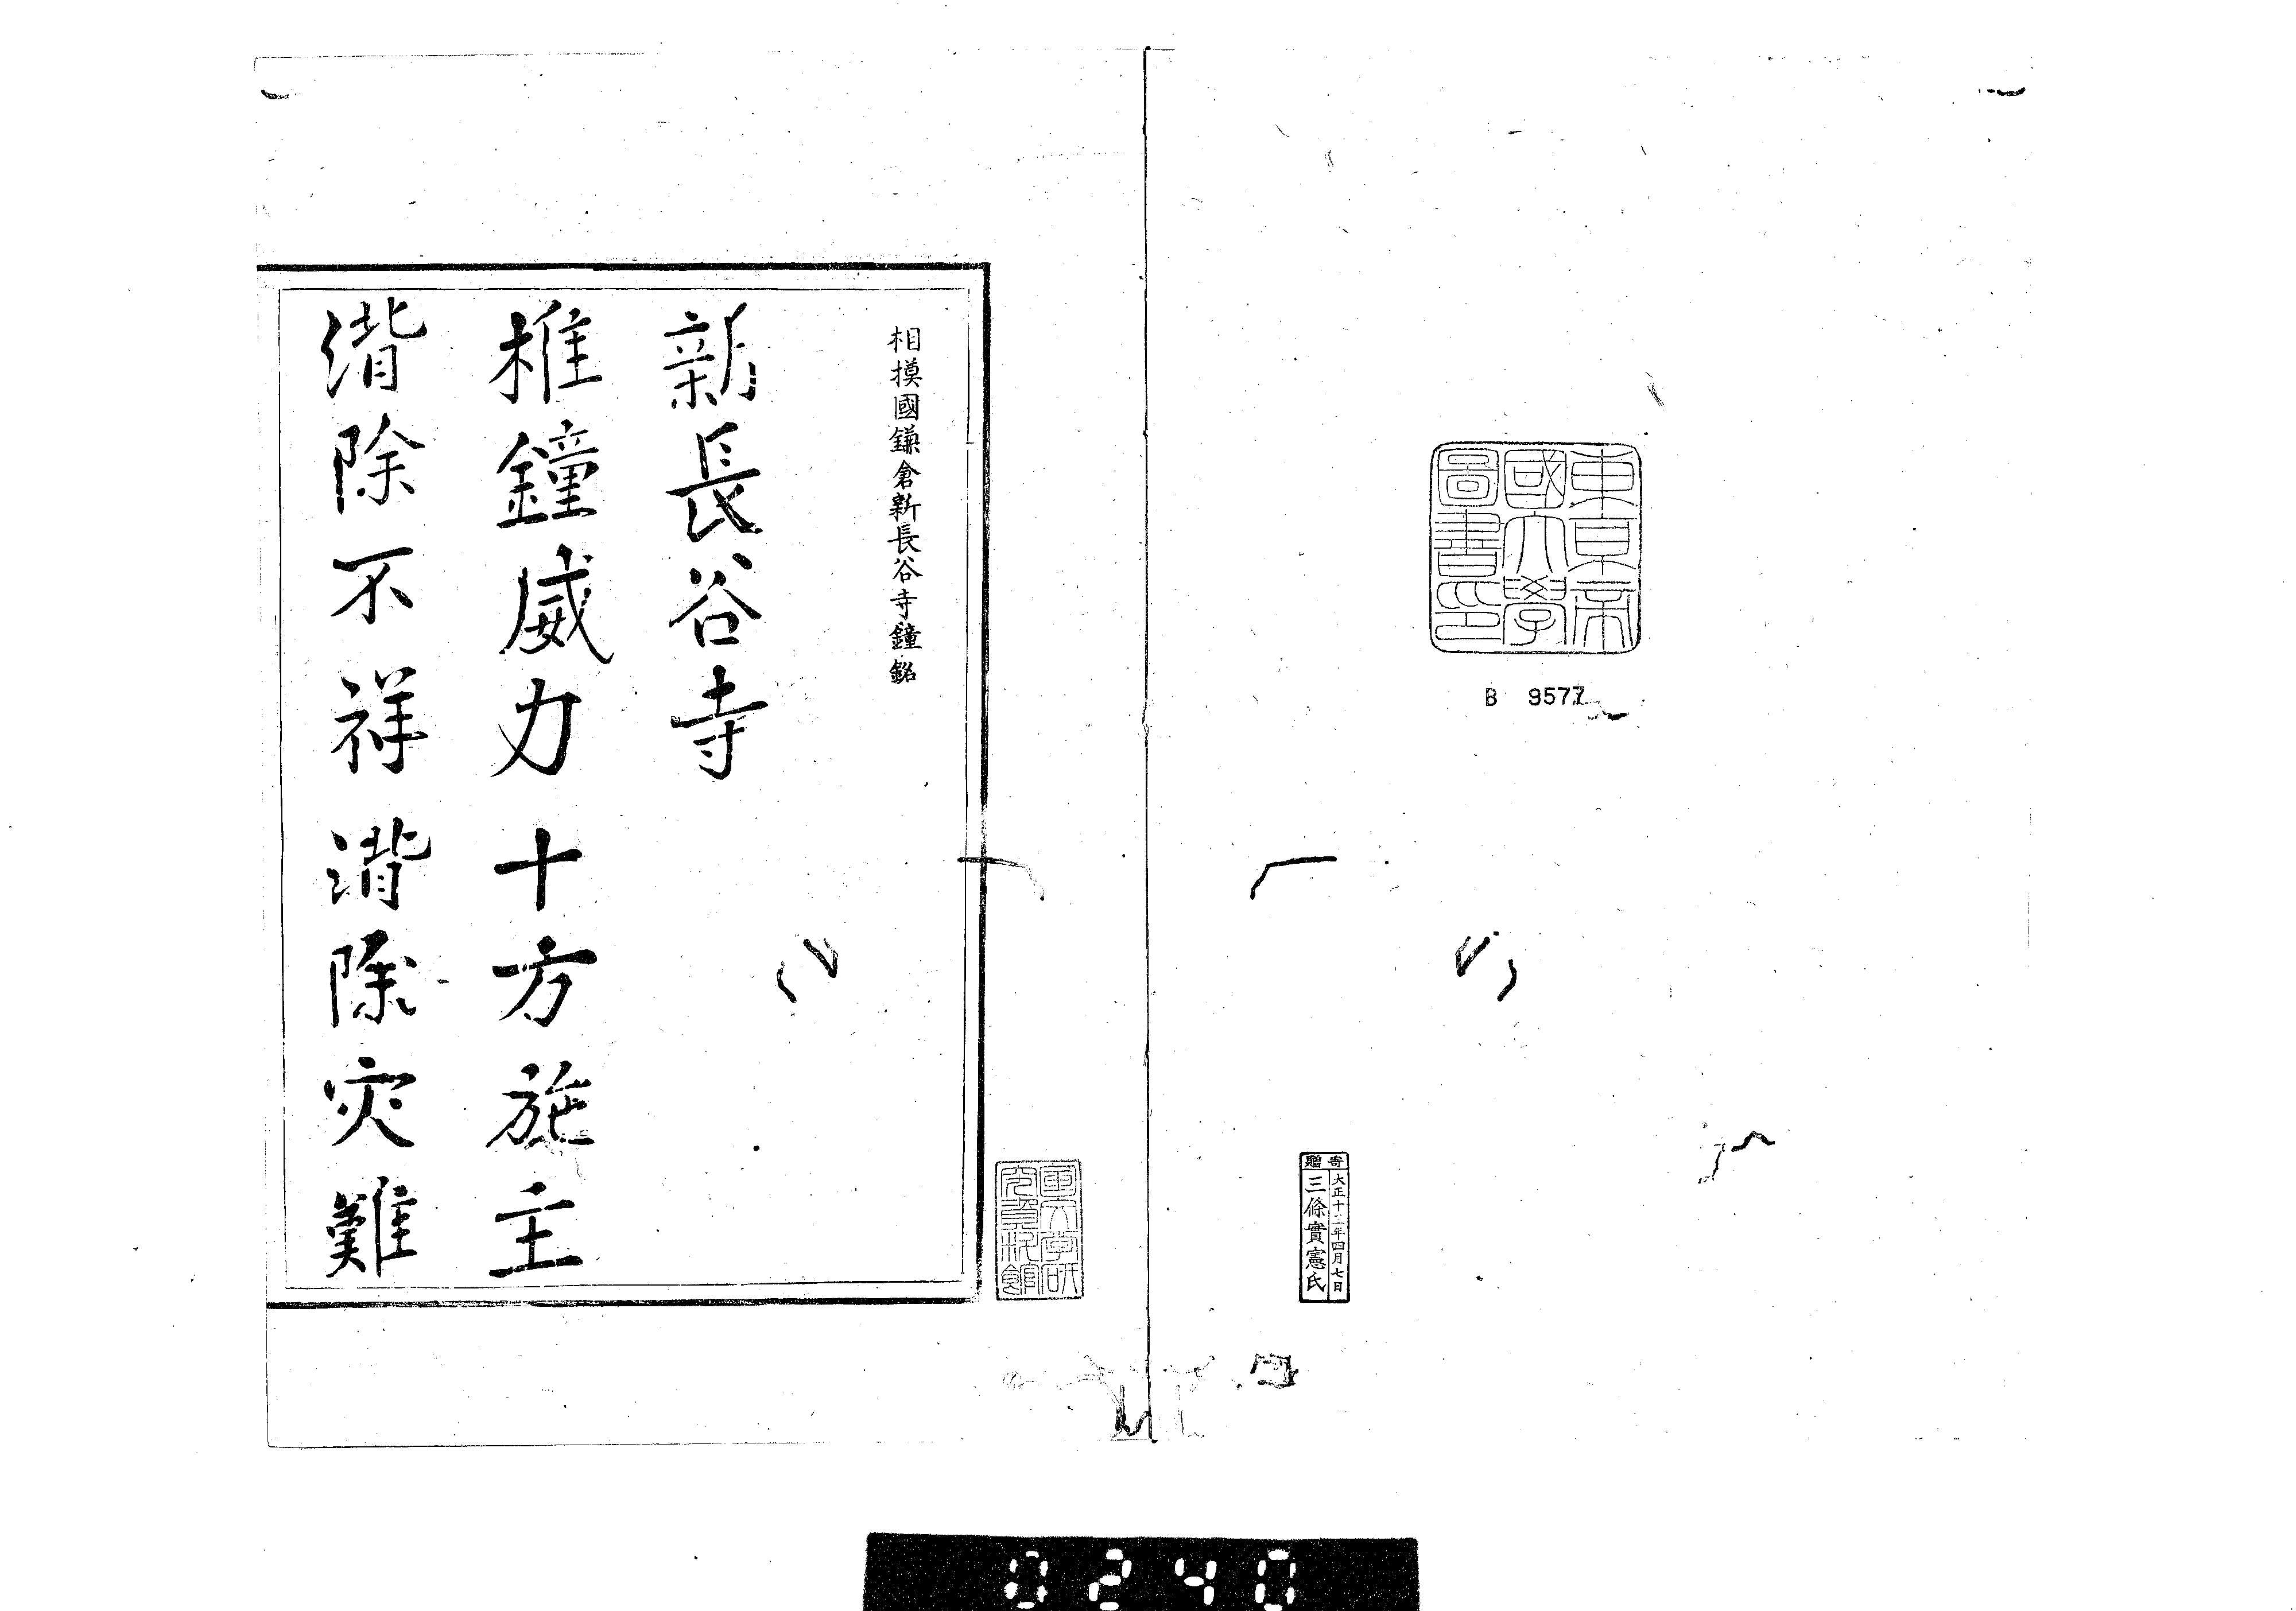 東京帝
國大學
圖書印
B 9577
寄贈
大正十二年四月七日
三條實憲氏
相摸國鎌倉新長谷寺鐘銘
新長谷寺
椎鐘威力十方施主
消除不祥消除灾難
0240